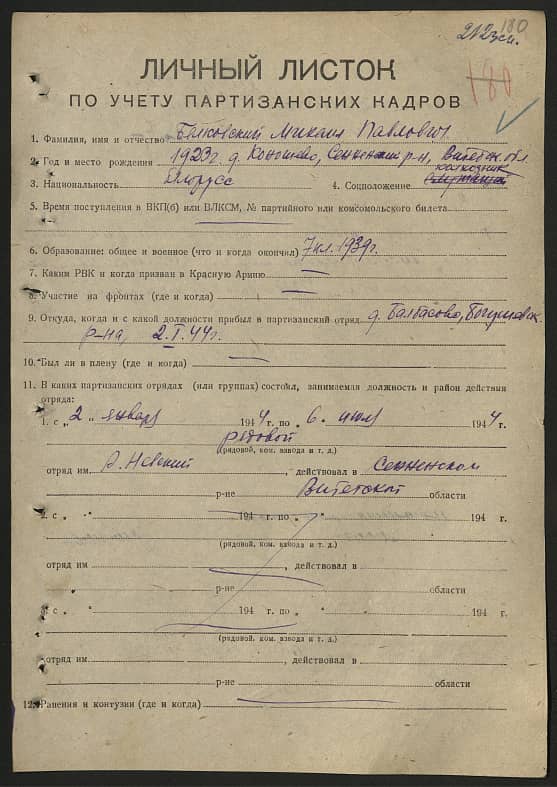 180
180
ЛИЧНЫЙ ЛИСТОК
ПО УЧЕТУ ПАРТИЗАНСКИХ КАДРОВ
1. Фамилия, имя и отчество Михаил Павлович
2. Год и место рождения 1923 г. д. Сенненский р-н, Витебск. обл.
колхозник
3. Национальность белорусс 4. Соцположение
5. Время поступления в ВКП(б) или ВЛКСМ, № партийного или комсомольского билета
6. Образование: общее и военное (что и когда окончил) 7 кл. 1939 г.
7. Каким РВК и когда призван в Красную Армию —
8. Участие на фронтах (где и когда) —
9. Откуда, когда и с какой должности прибыл в партизанский отряд д. Балбасово, Богушевск.
р-на, 2.I.44 г.
10. Был ли в плену (где и когда) —
11. В каких партизанских отрядах (или группах) состоял, занимаемая должность и район действия
отряда:
1. с „ 2 " января 1944 г. по „ 6 " июля 1944 г.
рядовой
(рядовой, ком. взвода и т. д.)
отряд им А. Невский, действовал в Сенненском
р-не Витебской области
2. с „ " 194 г. по „ " 194 г.
(рядовой, ком. взвода и т. д.)
отряд им , действовал в
р-не области
3. с „ " 194 г. по „ " 194 г.
(рядовой, ком. взвода и т. д.)
отряд им , действовал в
р-не области
12. Ранения и контузии (где и когда) —